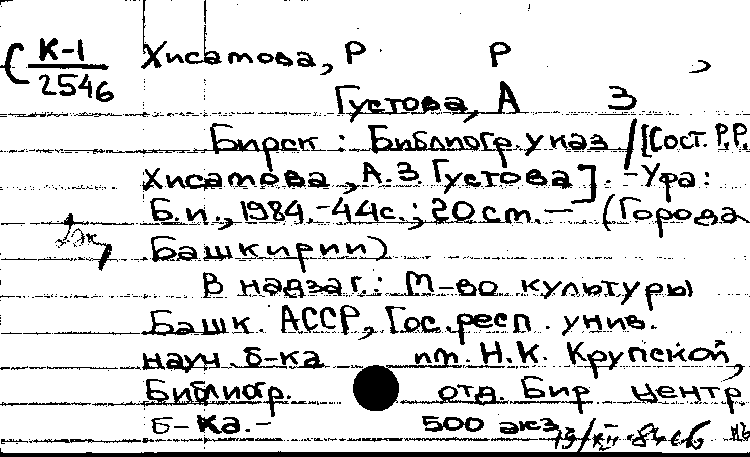 К-1
2546
Хисатова, Р Р ,
Густова, А З
Бирск : Библиогр. указ / [Сост. Р.Р.
Хисатова, А.З Густова]. - Уфа:
Б.и., 1984. - 44с.; 20 см. — (Города
Башкирии)
В надзаг.: М-во культуры
Башк. АССР, Гос. респ. унив.
науч. б-ка им. Н.К. Крупской,
Библиогр. отд. Бир центр
б-ка. - 500 экз